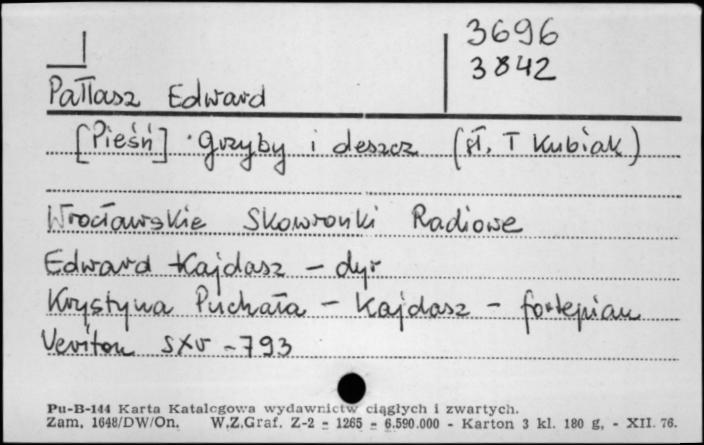 3696
3842
Pałłasz Edward
[Pieśń] Grzyby i deszcz (sł. T Kubiak)
Wrocławskie Skowronki Radiowe
Edward Kajdasz - dyr
Krystyna Puchała - Kajdasz - fortepian
Veriton SXV - 793
Pu-B-144 Karta Katalogowa wydawnictw ciągłych i zwartych.
Zam. 1648/DW/On. W.Z.Graf. Z-2 = 1265 = 6.590.000 - Karton 3 kl. 180 g. - XII. 76.